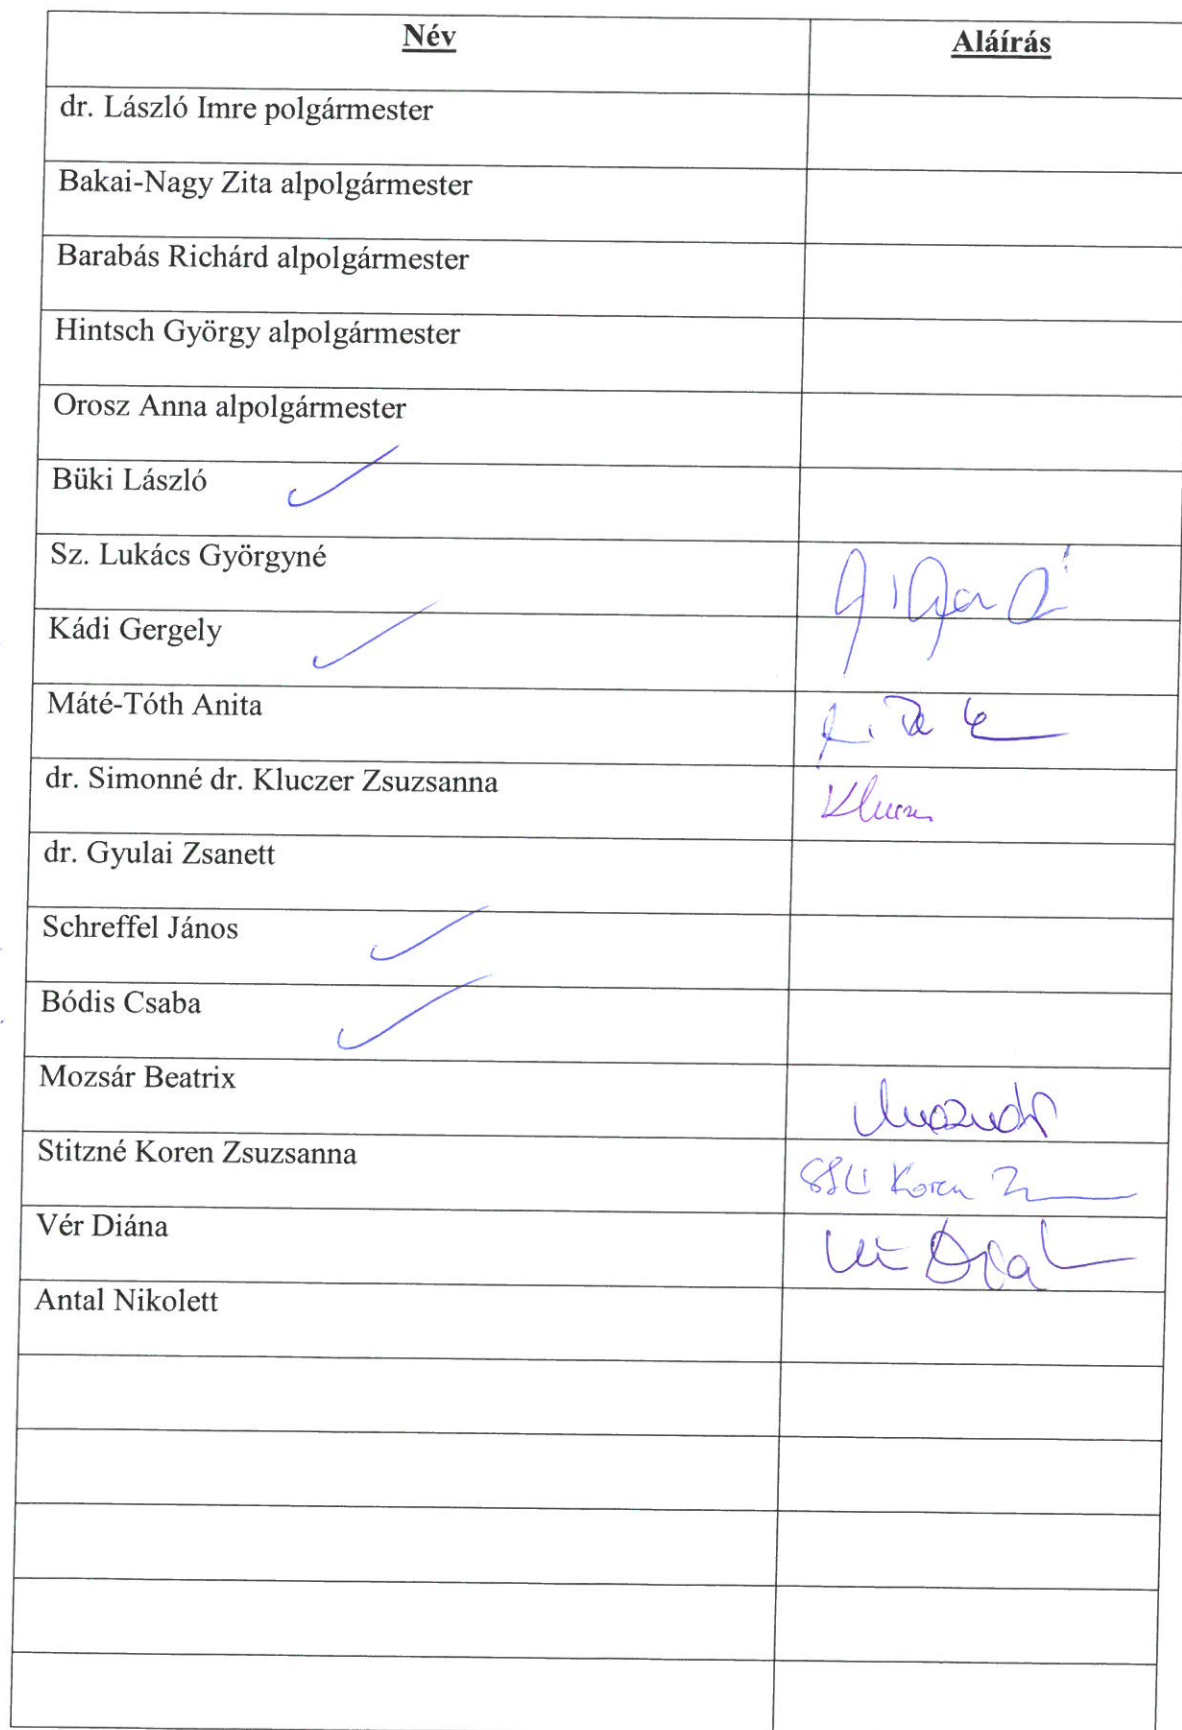 Név Aláírás
dr. László Imre polgármester
Bakai-Nagy Zita alpolgármester
Barabás Richárd alpolgármester
Hintsch György alpolgármester
Orosz Anna alpolgármester
Büki László
Sz. Lukács Györgyné
Kádi Gergely
Máté-Tóth Anita
dr. Simonné dr. Kluczer Zsuzsanna
dr. Gyulai Zsanett
Schreffel János
Bódis Csaba
Mozsár Beatrix
Stitzné Koren Zsuzsanna Koren
Vér Diána
Antal Nikolett